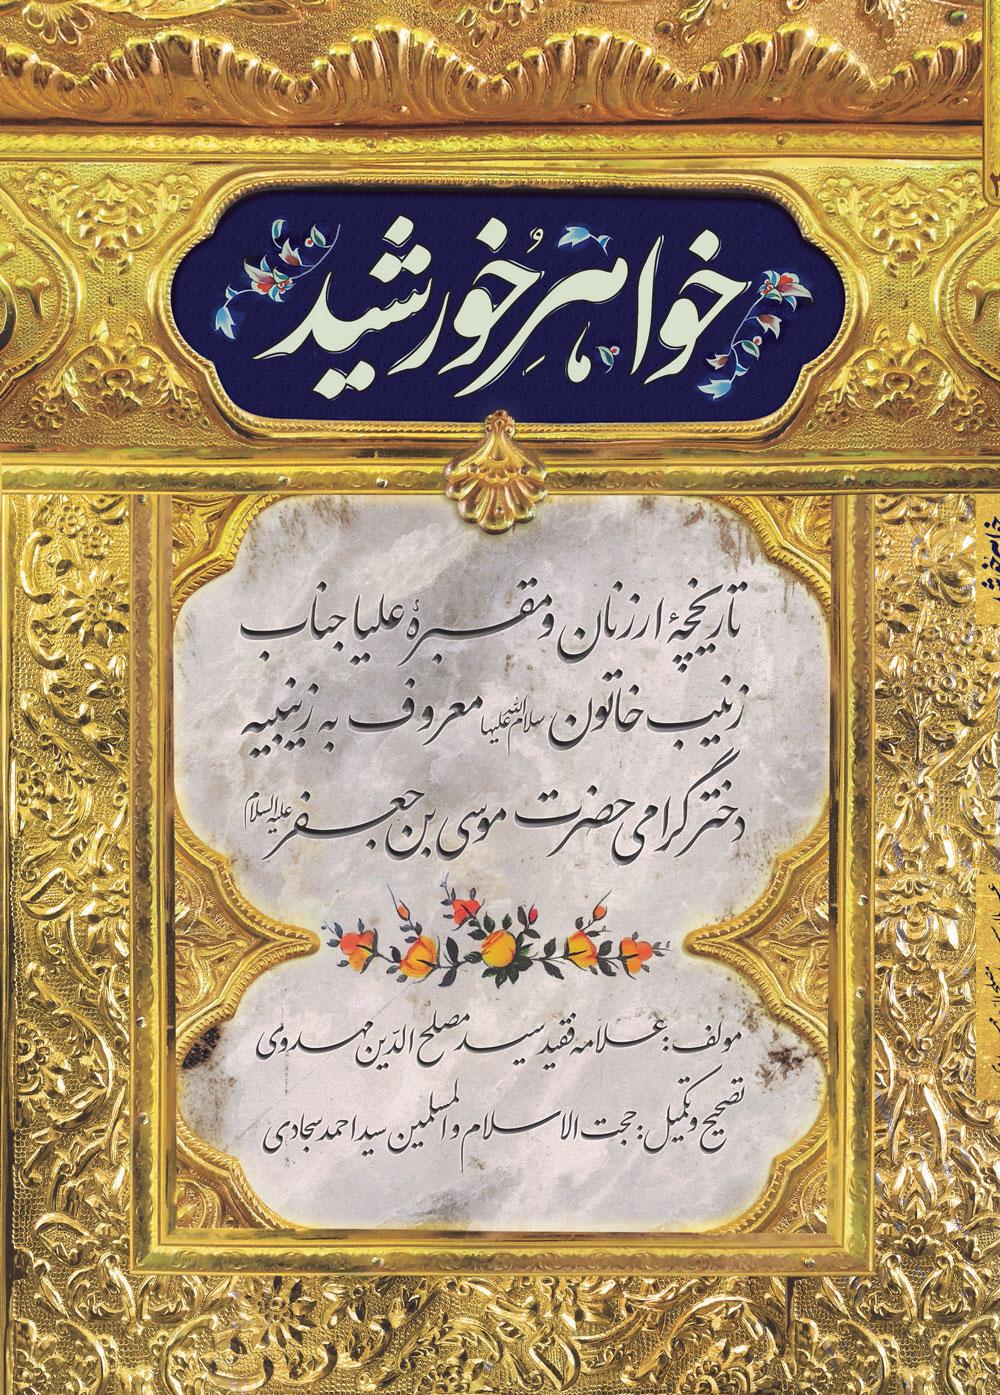 خواهرِ خورشید
تاریخچۀ ارزنان و مقبرۀ علیا جناب
زینب خاتون سلام‌الله‌علیها معروف به زینبیه
دختر گرامی حضرت موسی بن جعفر علیه‌السلام
مولف: علامه فقید سید مصلح الدّین مهدوی
تصحیح و تکمیل: حجت الاسلام والمسلمین سید احمد سجادی